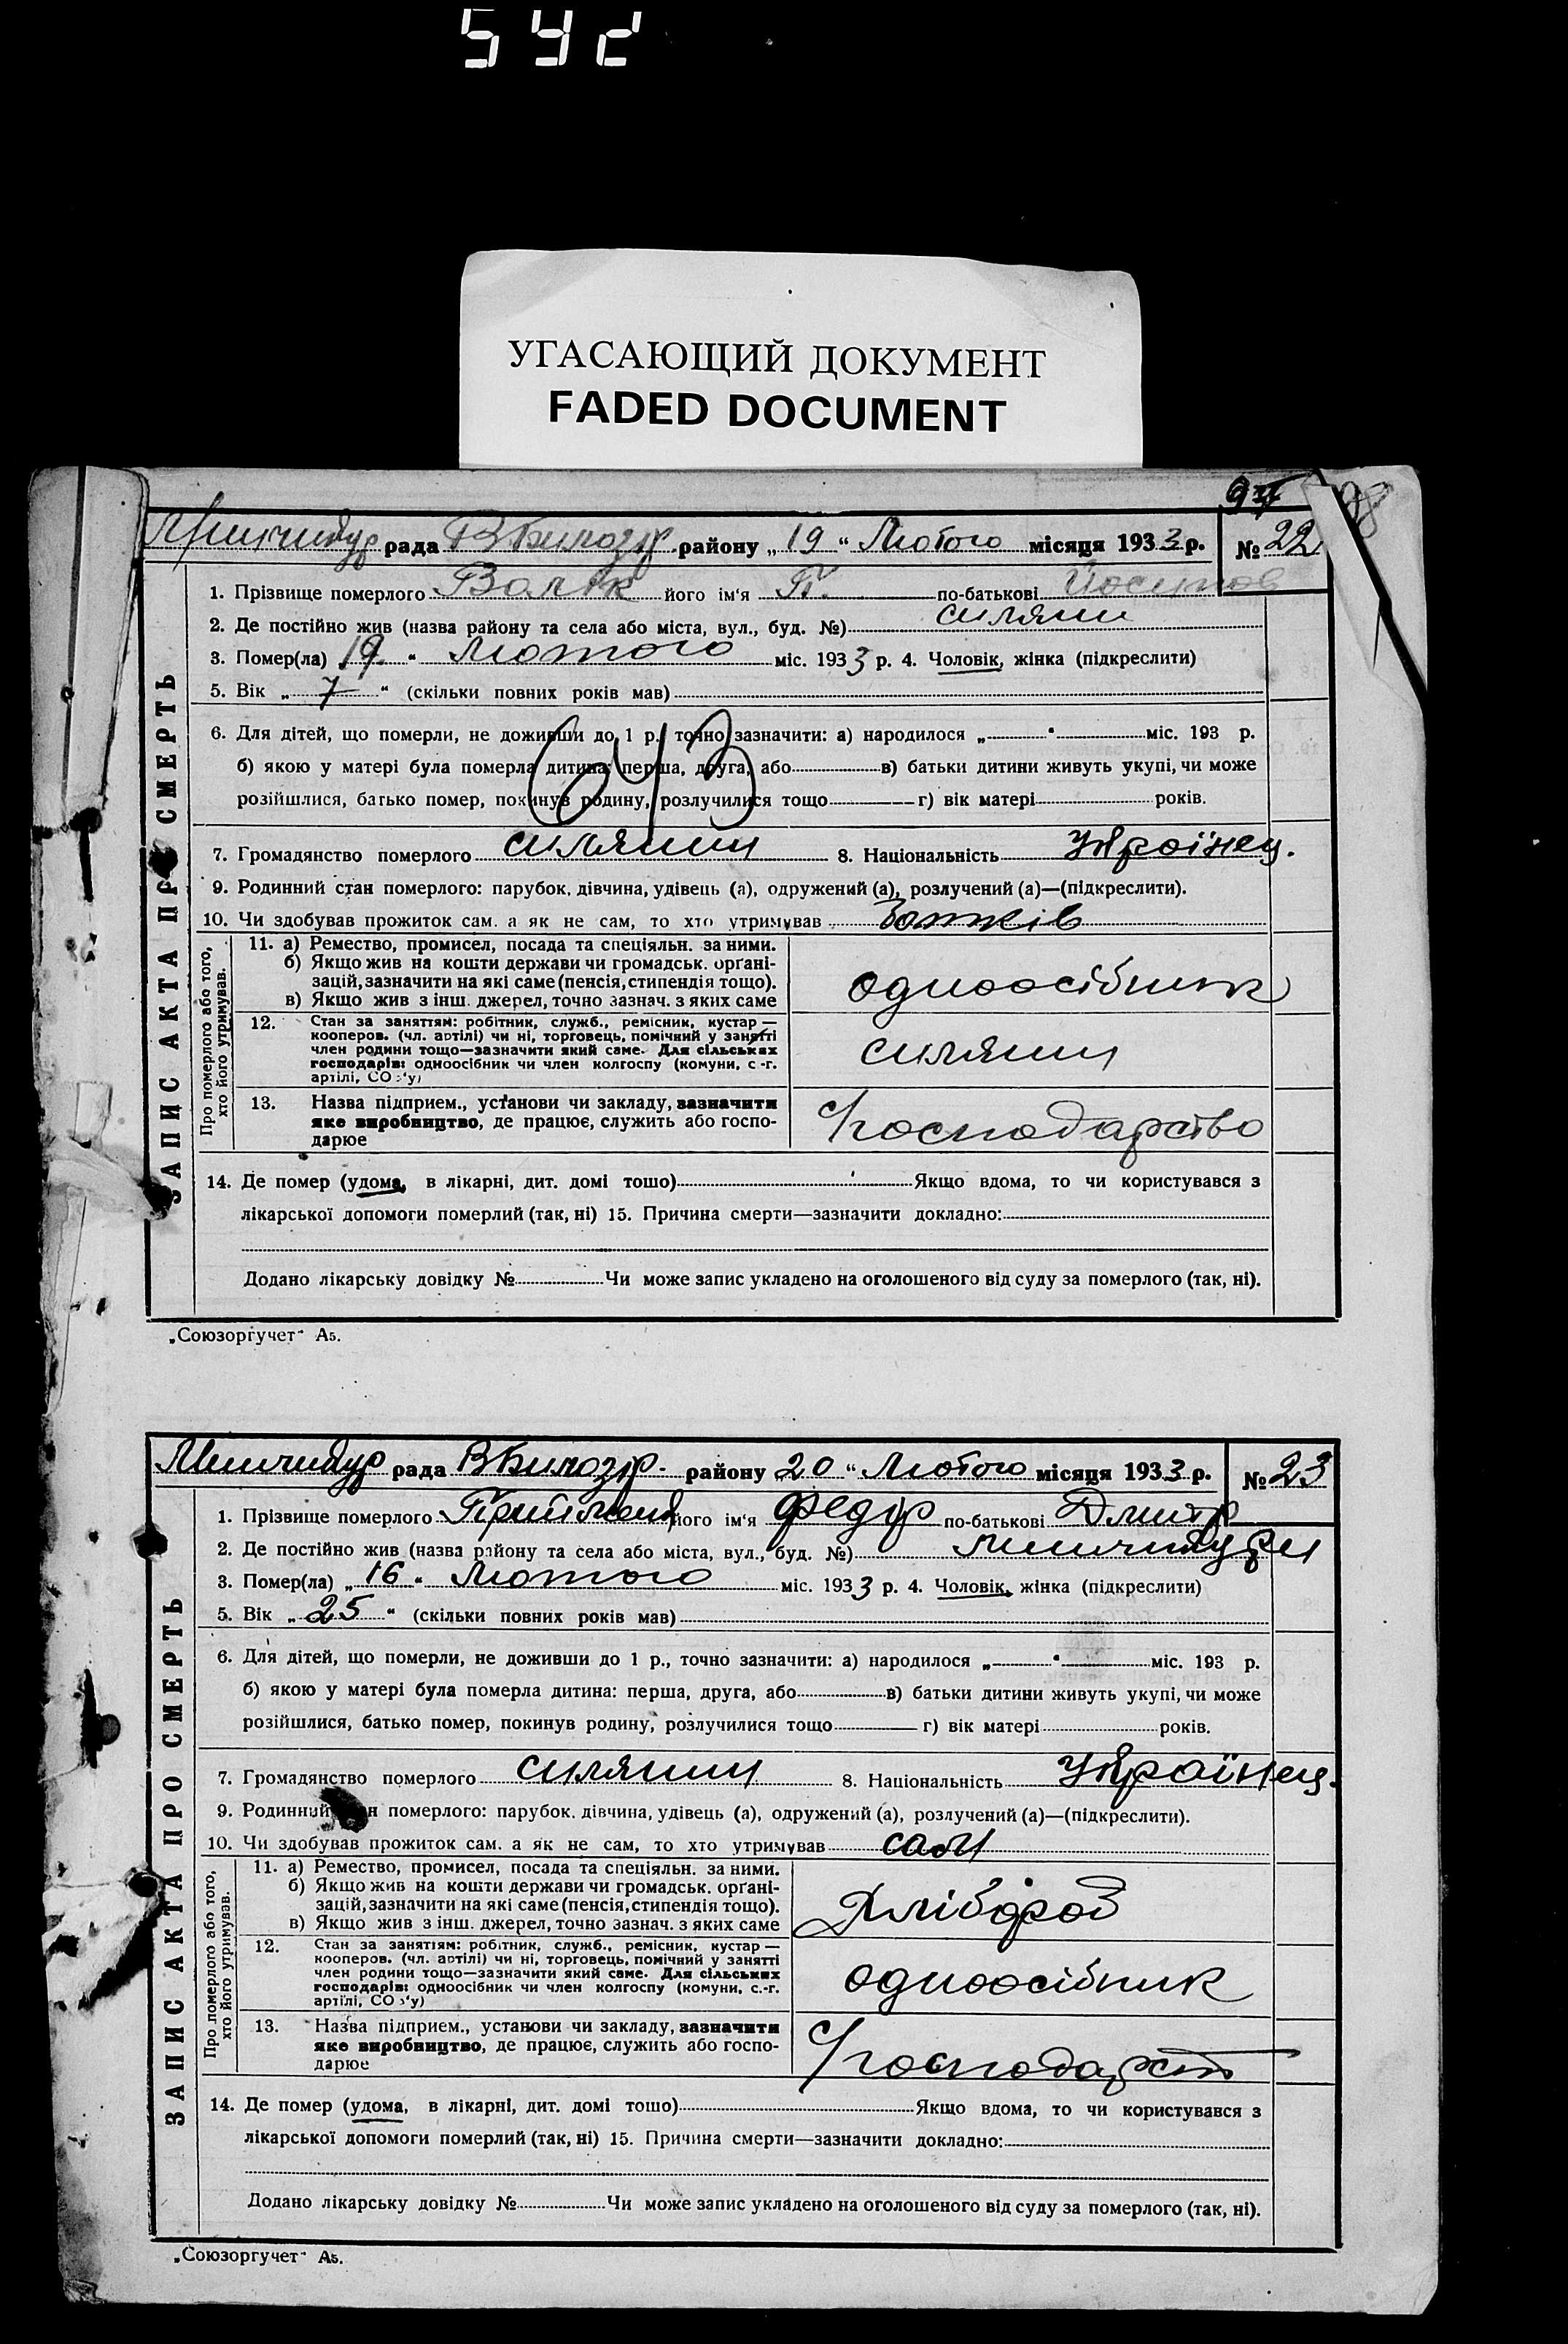 592
УГАСАЮЩИЙ ДОКУМЕНТ
FADED DOCUMENT
98
рада В Билозір району „19“ Лютого місяця 1933 р. № 22
ЗАПИС АКТА ПРО СМЕРТЬ
1. Прізвище померлого Волік його ім'я П. по-батькові Йосипов
2. Де постійно жив (назва району та села або міста, вул., буд. №) силяни
3. Помер(ла) „19“ Лютого міс. 1933 р. 4. Чоловік, жінка (підкреслити)
5. Вік „7“ (скільки повних років мав)
6. Для дітей, що померли, не доживши до 1 р., точно зазначити: а) народилося „ “ міс. 193 р.
б) якою у матері була померла дитина: перша, друга, або в) батьки дитини живуть укупі, чи може
розійшлися, батько помер, покинув родину, розлучилися тощо г) вік матері років.
7. Громадянство померлого силянин 8. Національність Українец.
9. Родинний стан померлого: парубок, дівчина, удівець (а), одружений (а), розлучений (а)—(підкреслити).
10. Чи здобував прожиток сам. а як не сам, то хто утримував
Про померлого або того,
хто його утримував.
11. а) Ремество, промисел, посада та спеціяльн. за ними.
б) Якщо жив на кошти держави чи громадськ. орґані-
зацій, зазначити на які саме (пенсія, стипендія тощо).
в) Якщо жив з інш. джерел, точно зазнач. з яких саме
одноосібник
12. Стан за заняттям: робітник, служб., ремісник, кустар —
кооперов. (чл. артілі) чи ні, торговець, помічний у занятті
член родини тощо—зазначити який саме. Для сільських
господарів: одноосібник чи член колгоспу (комуни, с.-г.
артілі, СОЗ'у)
силянин
13. Назва підприєм., установи чи закладу, зазначити
яке виробництво, де працює, служить або госпо-
дарює
Господарство
14. Де помер (удома, в лікарні, дит. домі тошо) Якщо вдома, то чи користувався з
лікарської допомоги померлий (так, ні) 15. Причина смерти—зазначити докладно:
Додано лікарську довідку № Чи може запис укладено на оголошеного від суду за померлого (так, ні).
„Союзоргучет“ А5.
рада В Билозір. району 20 “ Лютого місяця 1933 р. № 23
ЗАПИС АКТА ПРО СМЕРТЬ
1. Прізвище померлого його ім'я Федір по-батькові Дмитр
2. Де постійно жив (назва району та села або міста, вул., буд. №)
3. Помер(ла) „16“ Лютого міс. 1933 р. 4. Чоловік, жінка (підкреслити)
5. Вік „25“ (скільки повних років мав)
6. Для дітей, що померли, не доживши до 1 р., точно зазначити: а) народилося „ “ міс. 193 р.
б) якою у матері була померла дитина: перша, друга, або в) батьки дитини живуть укупі, чи може
розійшлися, батько помер, покинув родину, розлучилися тощо г) вік матері років.
7. Громадянство померлого силянин 8. Національність Українец.
9. Родинний померлого: парубок, дівчина, удівець (а), одружений (а), розлучений (а)—(підкреслити).
10. Чи здобував прожиток сам. а як не сам, то хто утримував сам
Про померлого або того,
хто його утримував.
11. а) Ремество, промисел, посада та спеціяльн. за ними.
б) Якщо жив на кошти держави чи громадськ. орґані-
зацій, зазначити на які саме (пенсія, стипендія тощо).
в) Якщо жив з інш. джерел, точно зазнач. з яких саме
Хлібороб
12. Стан за заняттям: робітник, служб., ремісник, кустар —
кооперов. (чл. артілі) чи ні, торговець, помічний у занятті
член родини тощо—зазначити який саме. Для сільських
господарів: одноосібник чи член колгоспу (комуни, с.-г.
артілі, СОЗ'у)
одноосібник
13. Назва підприєм., установи чи закладу, зазначити
яке виробництво, де працює, служить або госпо-
дарює
Господарст
14. Де помер (удома, в лікарні, дит. домі тошо) Якщо вдома, то чи користувався з
лікарської допомоги померлий (так, ні) 15. Причина смерти—зазначити докладно:
Додано лікарську довідку № Чи може запис укладено на оголошеного від суду за померлого (так, ні).
„Союзоргучет“ А5.